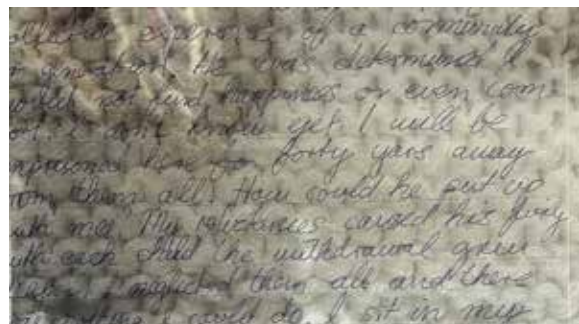 experiences of a community
generation. He was determined I
would not find happiness or even com
don't know yet. I will be
imprisoned here for forty years away
from them all. How could he put up
with me. My reluctance caused his fury
with each child the withdrawal grew
I neglected them all and there
I could do. I sit in my